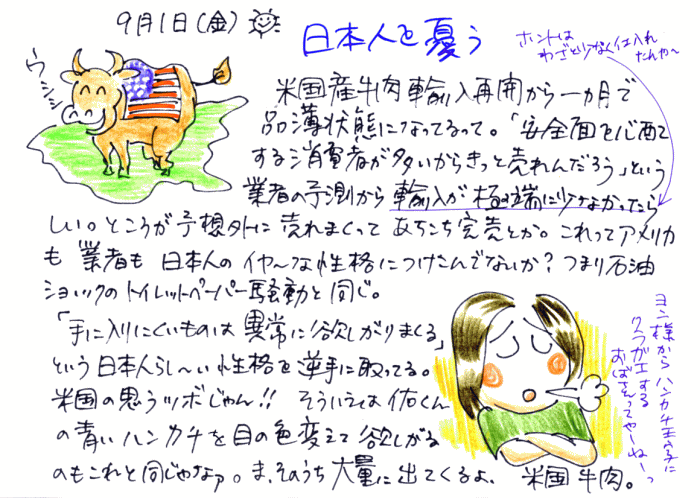 9月1日(金)
日本人を憂う
ホントは
わざと少なく仕入れ
たんや〜
ウシシシ
米国産牛肉輸入再開から一ヵ月で
品薄状態になってるって。「安全面を心配
する消費者が多いからきっと売れんだろう」という
業者の予測から輸入が極端に少なかったら
しい。ところが予想外に売れまくってあちこち完売とか。これってアメリカ
も業者も日本人のイヤ〜な性格につけこんでないか?つまり石油
ショックのトイレットペーパー騒動と同じ。
「手に入りにくいものは異常に欲しがりまくる」
という日本人らし〜い性格を逆手に取ってる。
米国の思うツボじゃん!!そういえば佑くん
の青いハンカチを目の色変えて欲しがる
のもこれと同じやなァ。ま、そのうち大量に出てくるよ、米国牛肉。
ヨン様からハンカチ王子に
クラガエする
おばさんってやーねーっ